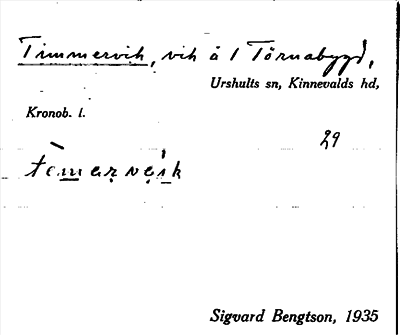 Timmervik, vik å 1 Törnabygd,
Urshults sn, Kinnevalds hd,
Kronob. l.
29
Sigvard Bengtson, 1935